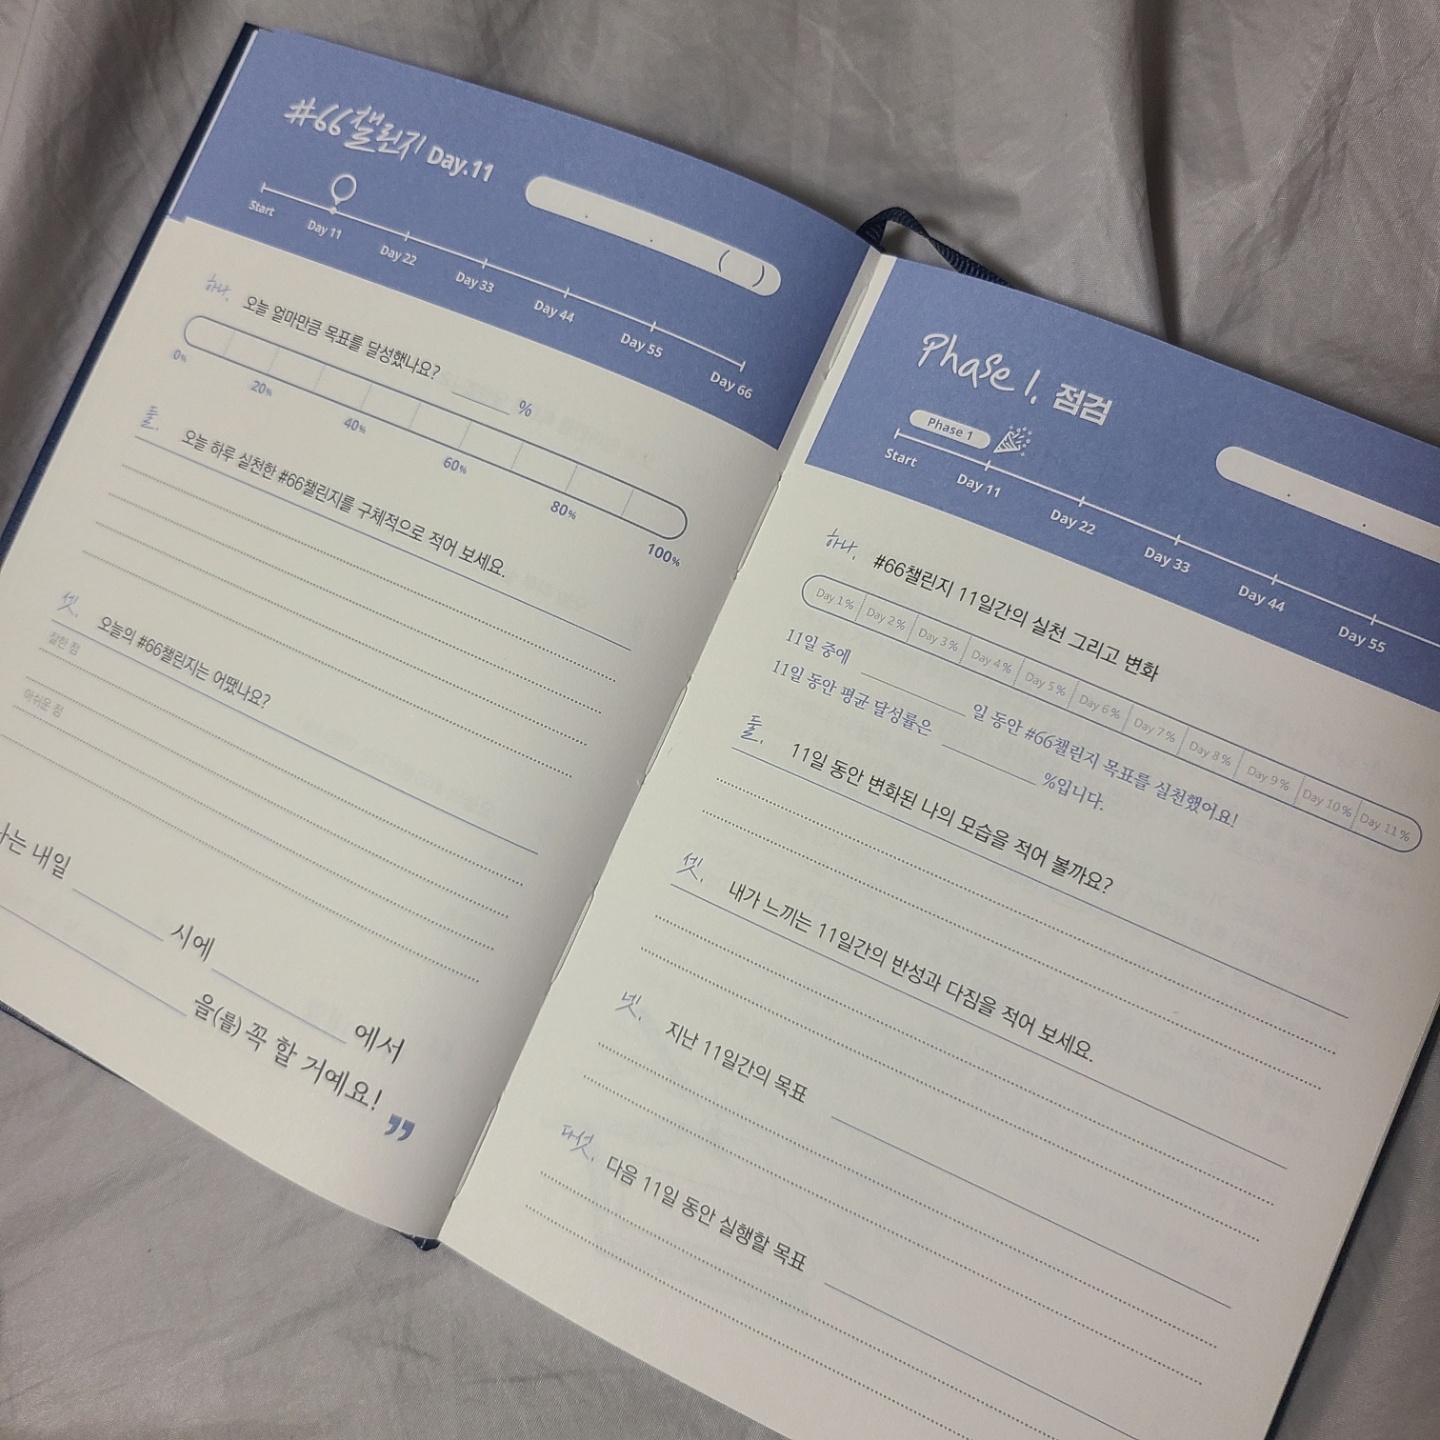 #66챌린지 Day.11
( )
Start Day 11 Day 22 Day 33 Day 44 Day 55 Day 66
하나. 오늘 얼마만큼 목표를 달성했나요? %
0% 20% 40% 60% 80% 100%
둘. 오늘 하루 실천한 #66챌린지를 구체적으로 적어 보세요.
셋. 오늘의 #66챌린지는 어땠나요?
잘한 점
아쉬운 점
나는 내일 시에 에서
을(를) 꼭 할 거예요!
”
Phase 1. 점검
Phase 1
Start Day 11 Day 22 Day 33 Day 44 Day 55
하나. #66챌린지 11일간의 실천 그리고 변화
Day 1% Day 2% Day 3% Day 4% Day 5% Day 6% Day 7% Day 8% Day 9% Day 10% Day 11%
11일 중에 일 동안 #66챌린지 목표를 실천했어요!
11일 동안 평균 달성률은 %입니다.
둘. 11일 동안 변화된 나의 모습을 적어 볼까요?
셋. 내가 느끼는 11일간의 반성과 다짐을 적어 보세요.
넷. 지난 11일간의 목표
다섯. 다음 11일 동안 실행할 목표